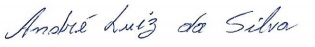 André Luiz da Silva